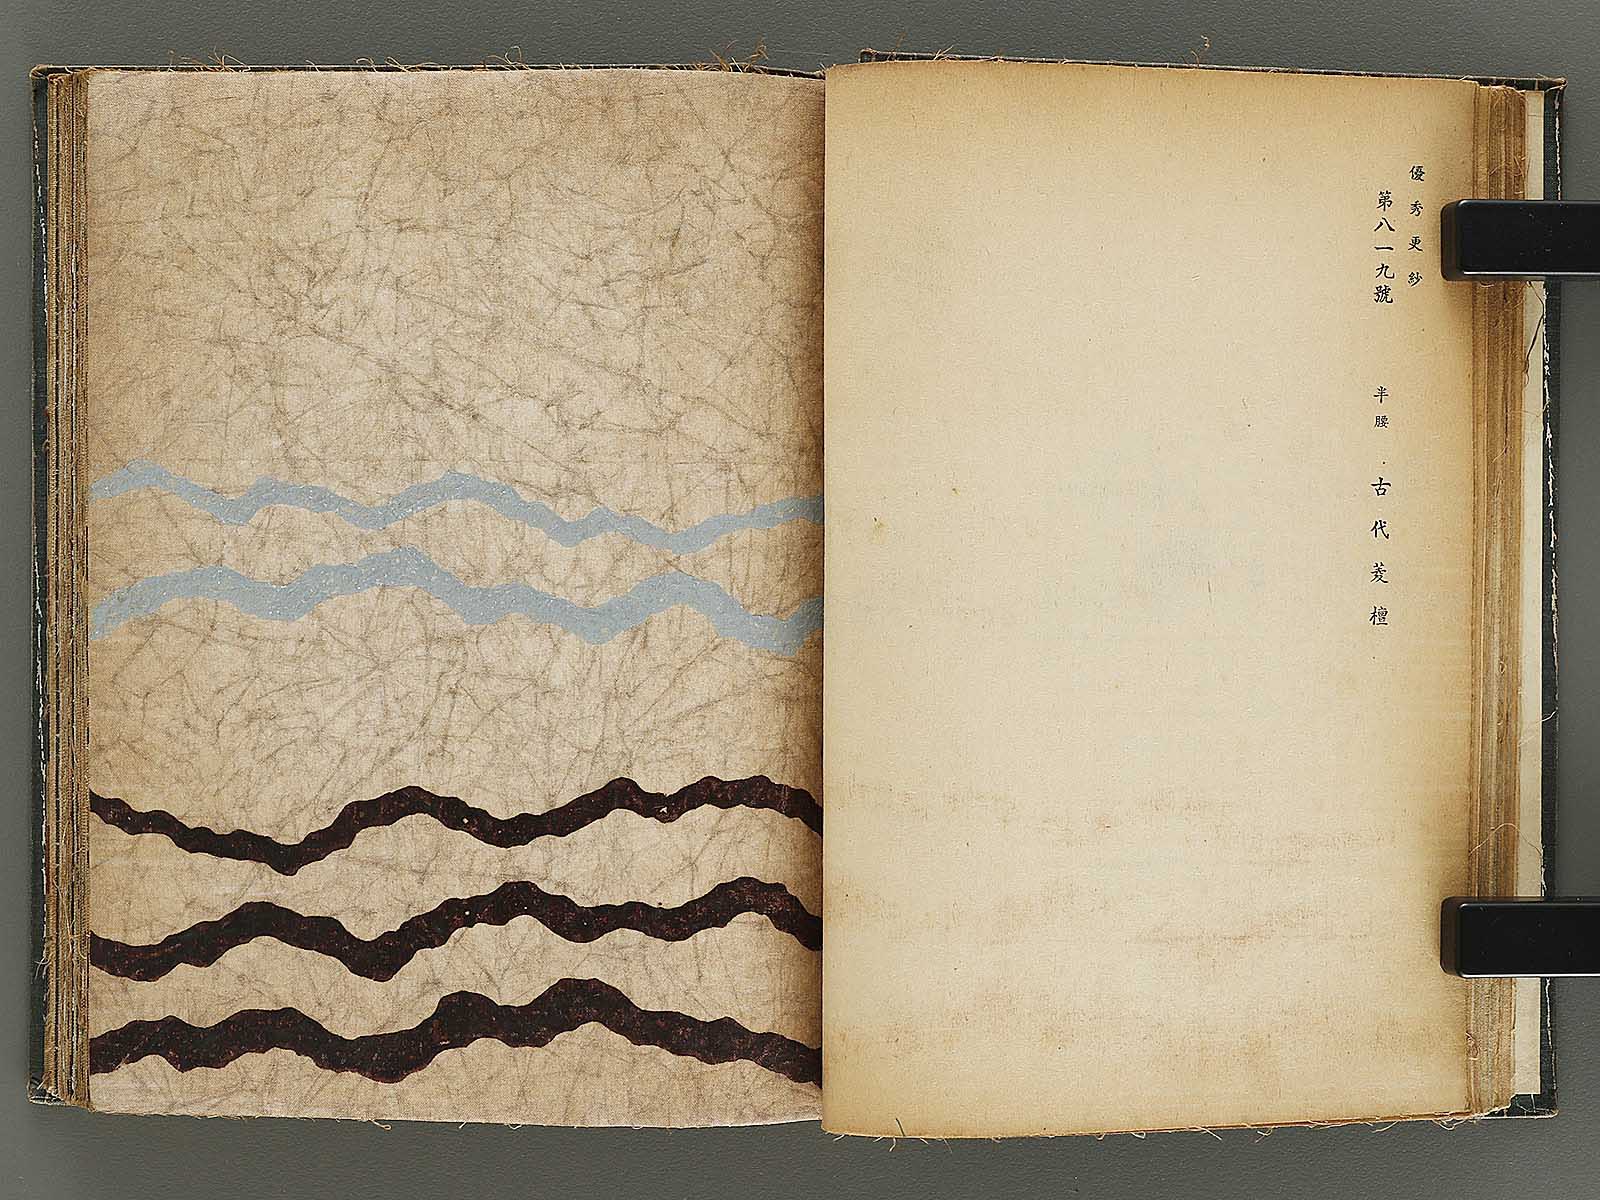 優秀更紗
第八一九號 半腰 古代菱檀